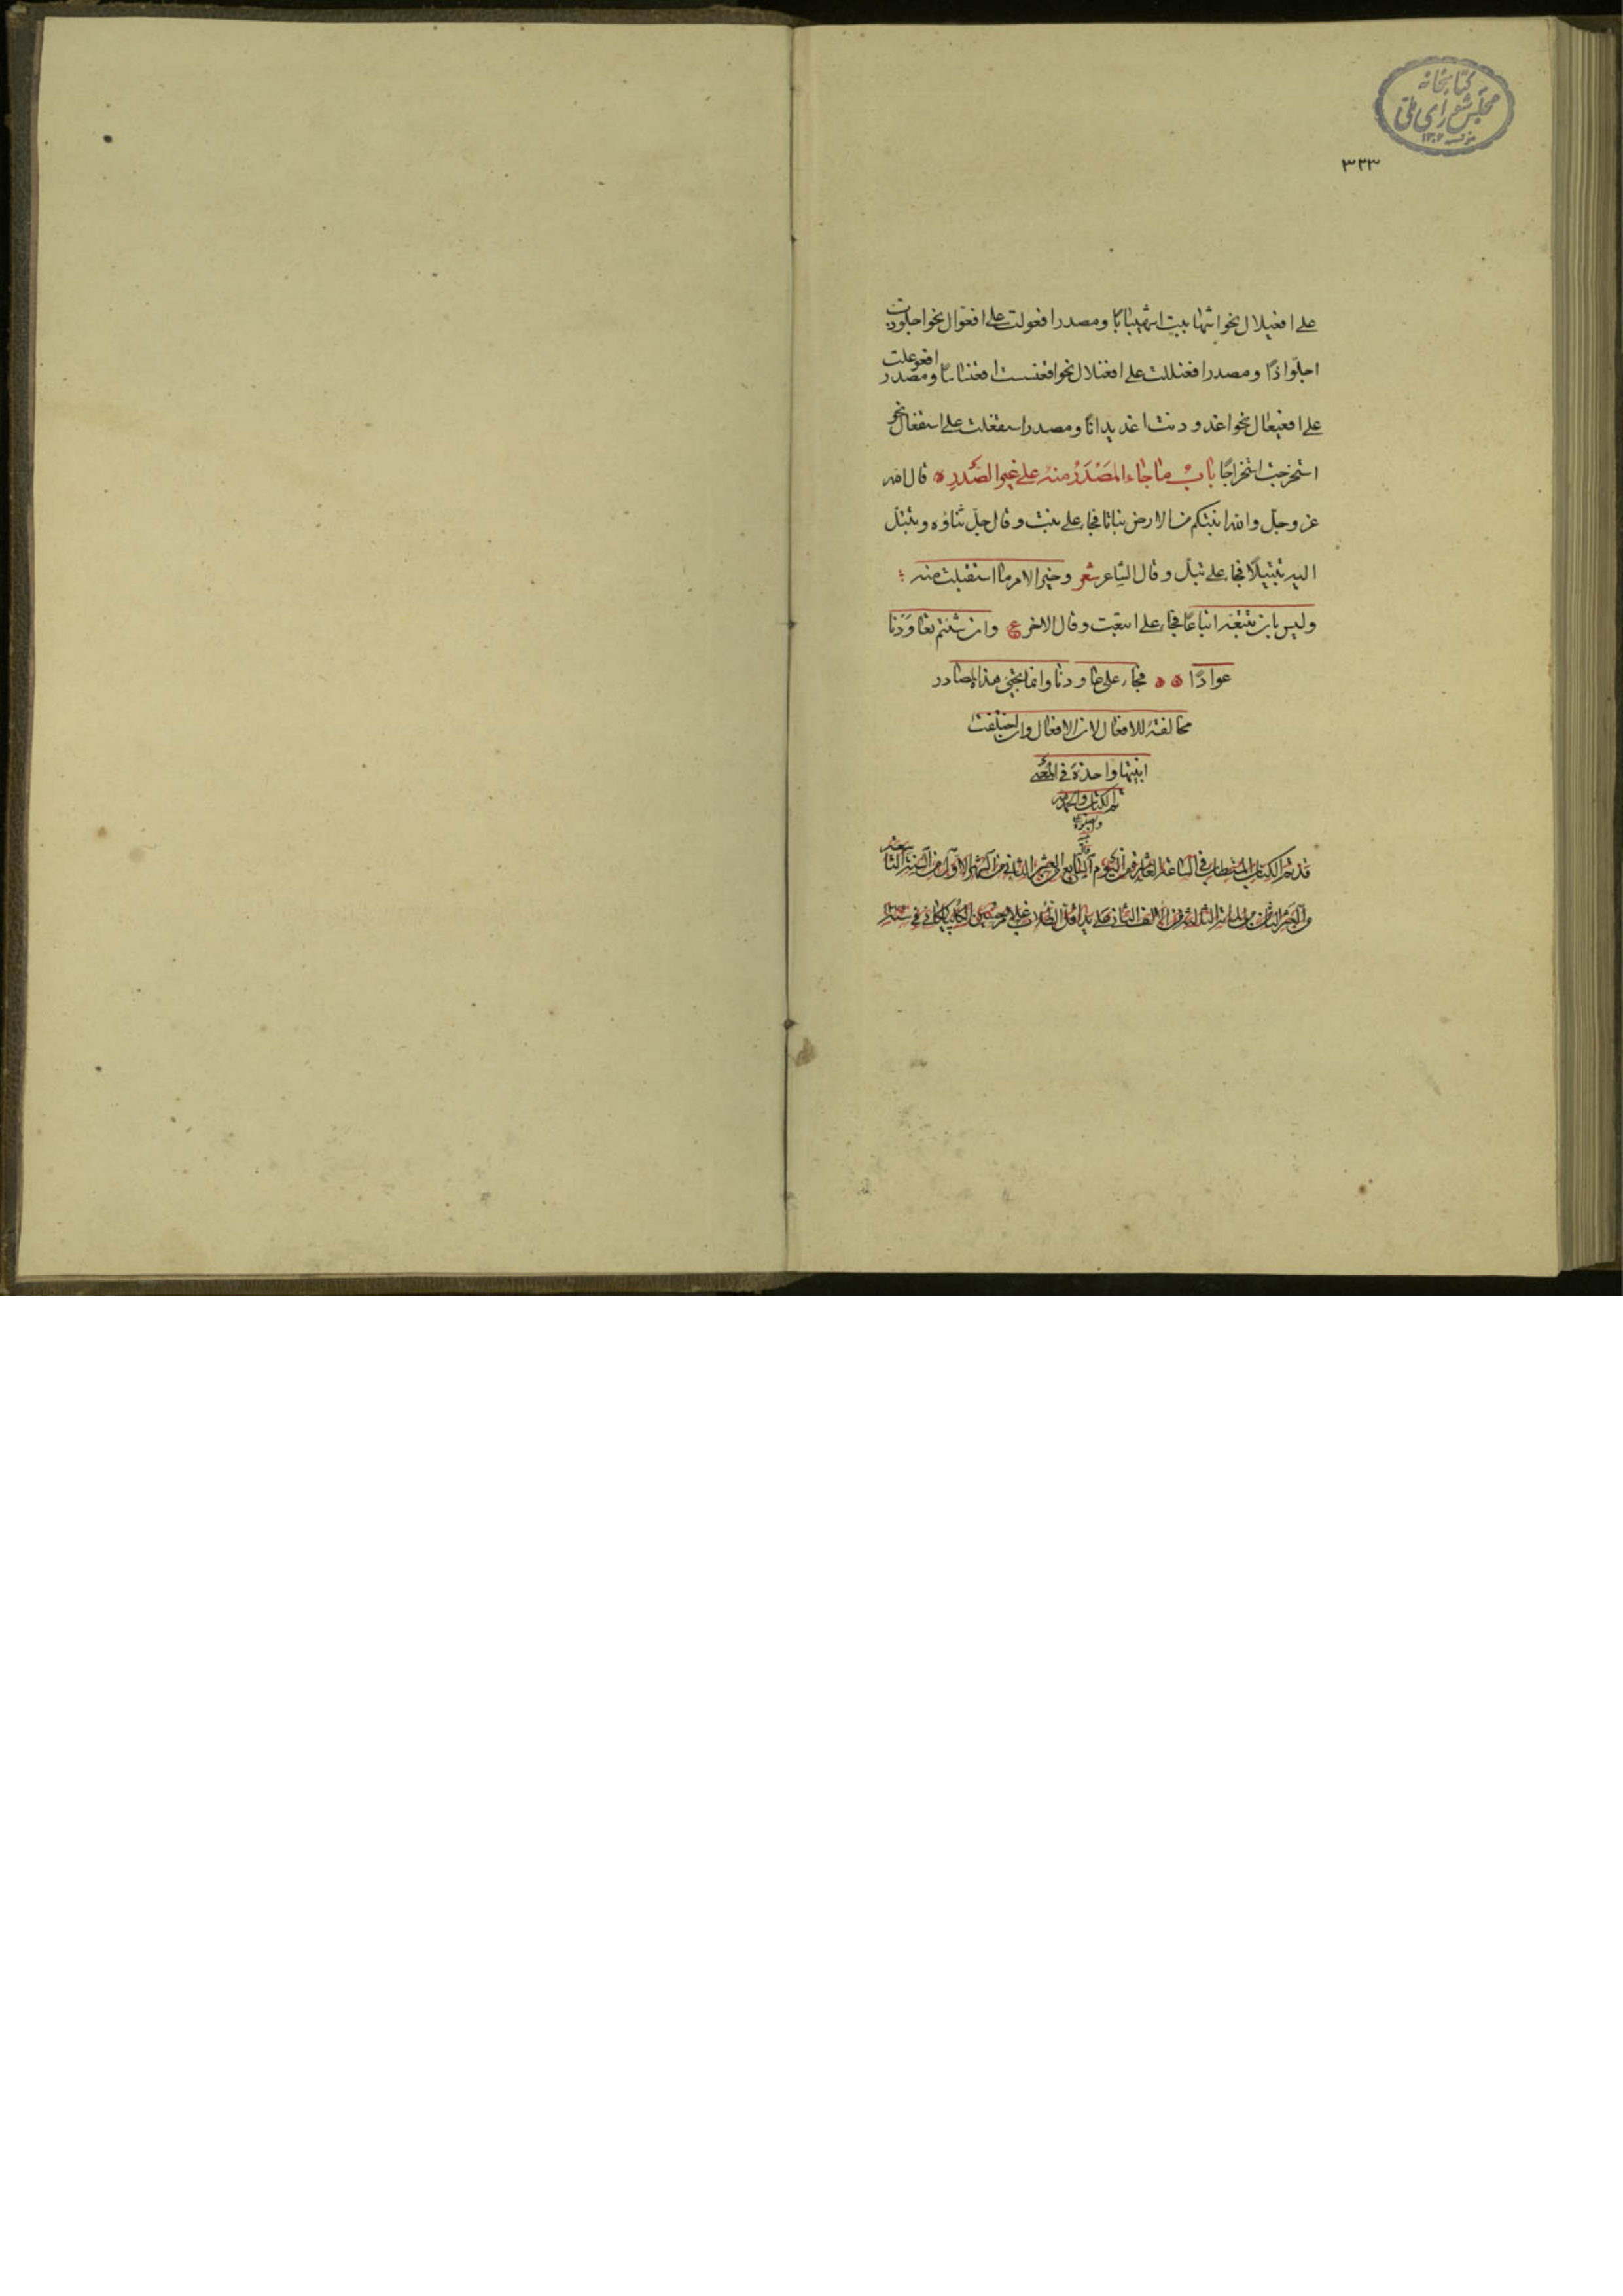 كتابخانه
مجلس شورای ملی
۱۳۰۲
٣٢٣
على افعيلال نحو اشهابيت اشهيبابا ومصدر افعولت على افعوال نحو اجلوذت
اجلواذًا ومصدر افعنللت على افعنلال نحو اقعنست اقعناسا ومصدر افعوعلت
على افعيعال نحو اغدودنت اغديدانا ومصدر استفعلت على استفعال نحو
استخرجت استخراجًا باب ما جاء المَصْدَرُ منه على غير الصَّدَرِ ه قال الله
عز وجل والله انبتكم من الارض نباتا فجاء على نبت وقال جلّ ثناؤه وتبتّل
اليه تبتيلًا فجاء على تبّل وقال الشاعر شعر وخير الامر ما استقبلت منه :
وليس بان تتبّعه اتباعًا فجاء على اتبعت وقال الاخر ع وان شئتم تعاوَدْنا
عوادًا ه ه فجاء على عاودنا وانما تجئ هذه المصادر
مخالفة للافعال لان الافعال وان اختلفت
ابنيتها واحدة في المعنى
تم الكتاب والحمد لله
قد تمّ الكتاب المستطاب في الساعة العاشرة من اليوم السابع من العشر الثاني من الشهر الاوّل من السنة
من العشر الثامن من المائة الثالثة من الالف الثاني على يد اقل الطلاب غلامحسين الگلپايگاني في سنة